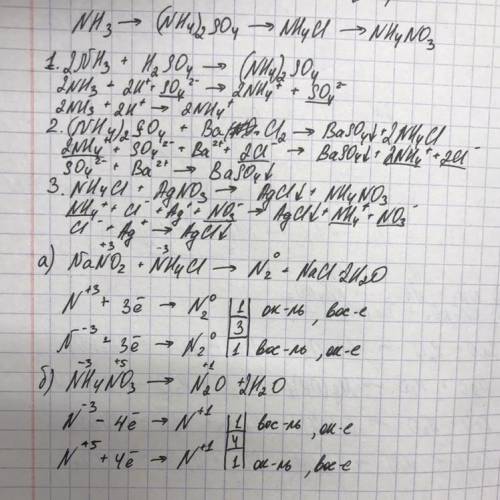 NH3 → (NH4)2SO4 → NH4Cl → NH4NO3
1. 2NH3 + H2SO4 → (NH4)2SO4
2NH3 + 2H⁺ + SO4²⁻ → 2NH4⁺ + SO4²⁻
2NH3 + 2H⁺ → 2NH4⁺
2. (NH4)2SO4 + BaCl2 → BaSO4↓ + 2NH4Cl
2NH4⁺ + SO4²⁻ + Ba²⁺ + 2Cl⁻ → BaSO4↓ + 2NH4⁺ + 2Cl⁻
SO4²⁻ + Ba²⁺ → BaSO4↓
3. NH4Cl + AgNO3 → AgCl↓ + NH4NO3
NH4⁺ + Cl⁻ + Ag⁺ + NO3⁻ → AgCl↓ + NH4⁺ + NO3⁻
Cl⁻ + Ag⁺ → AgCl↓
+3 -3
а) NaNO2 + NH4Cl → N2⁰ + NaCl 2H2O
N⁺³ + 3ē → N2⁰ | 1 | ок-ль, вос-е
3
N⁻³ - 3ē → N2⁰ | 1 вос-ль, ок-е
-3 +5 +1
б) NH4NO3 → N2O + 2H2O
N⁻³ - 4ē → N⁺¹ | 1 | вос-ль, ок-е
4
N⁺⁵ + 4ē → N⁺¹ | 1 | ок-ль, вос-е